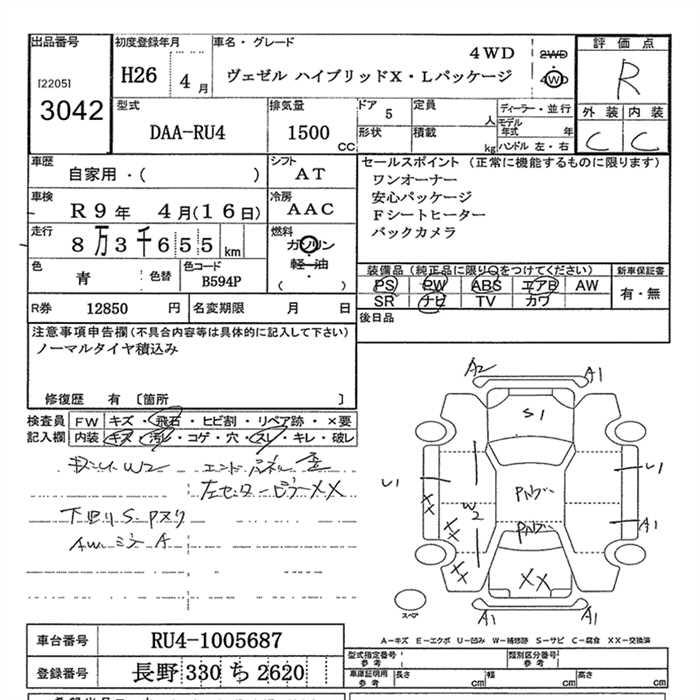 出品番号
[2205]
3042
初度登録年月
H26 4月
車名・グレード
4WD
ヴェゼル ハイブリッドX・Lパッケージ
2WD
4WD
評価点
R
外装 内装
C C
型式
DAA-RU4
排気量
1500
CC
ドア
5
定員
人
形状
積載
kg
ディーラー・並行
モデル
年式 年
ハンドル 左・右
車歴
自家用・( )
シフト
AT
車検
R9年 4月(16日)
冷房
AAC
走行
8万3千655km
燃料
ガソリン
軽油
・
( )
色
青
・色替
色コード
B594P
R券 12850 円
名変期限 月 日
セールスポイント(正常に機能するものに限ります)
ワンオーナー
安心パッケージ
Fシートヒーター
バックカメラ
装備品(純正品に限り○をつけてください)
PS PW ABS エアB AW
SR ナビ TV カワ
新車保証書
有・無
後日品
注意事項申告欄(不具合内容等は具体的に記入して下さい)
ノーマルタイヤ積込み
修復歴 有 〔箇所 〕
検査員
記入欄
FW キズ・飛石・ヒビ割・リペア跡・×要
内装 キズ・汚レ・コゲ・穴・スレ・キレ・破レ
W2 エンドパネル
左センターピラーXX
下回りS・Pスリ
AWミゾA
A2
A1
S1
U1
U1
XX
W2
XX
XX
A1
XX
A1
A1
スペア
A―キズ E―エクボ U―凹み W―補修跡 S―サビ C―腐食 XX―交換済
車台番号
RU4-1005687
登録番号
長野 330 ち 2620
型式指定番号
参考
類別区分番号
参考
車庫証明用
参考
長さ cm
幅 cm
高さ cm